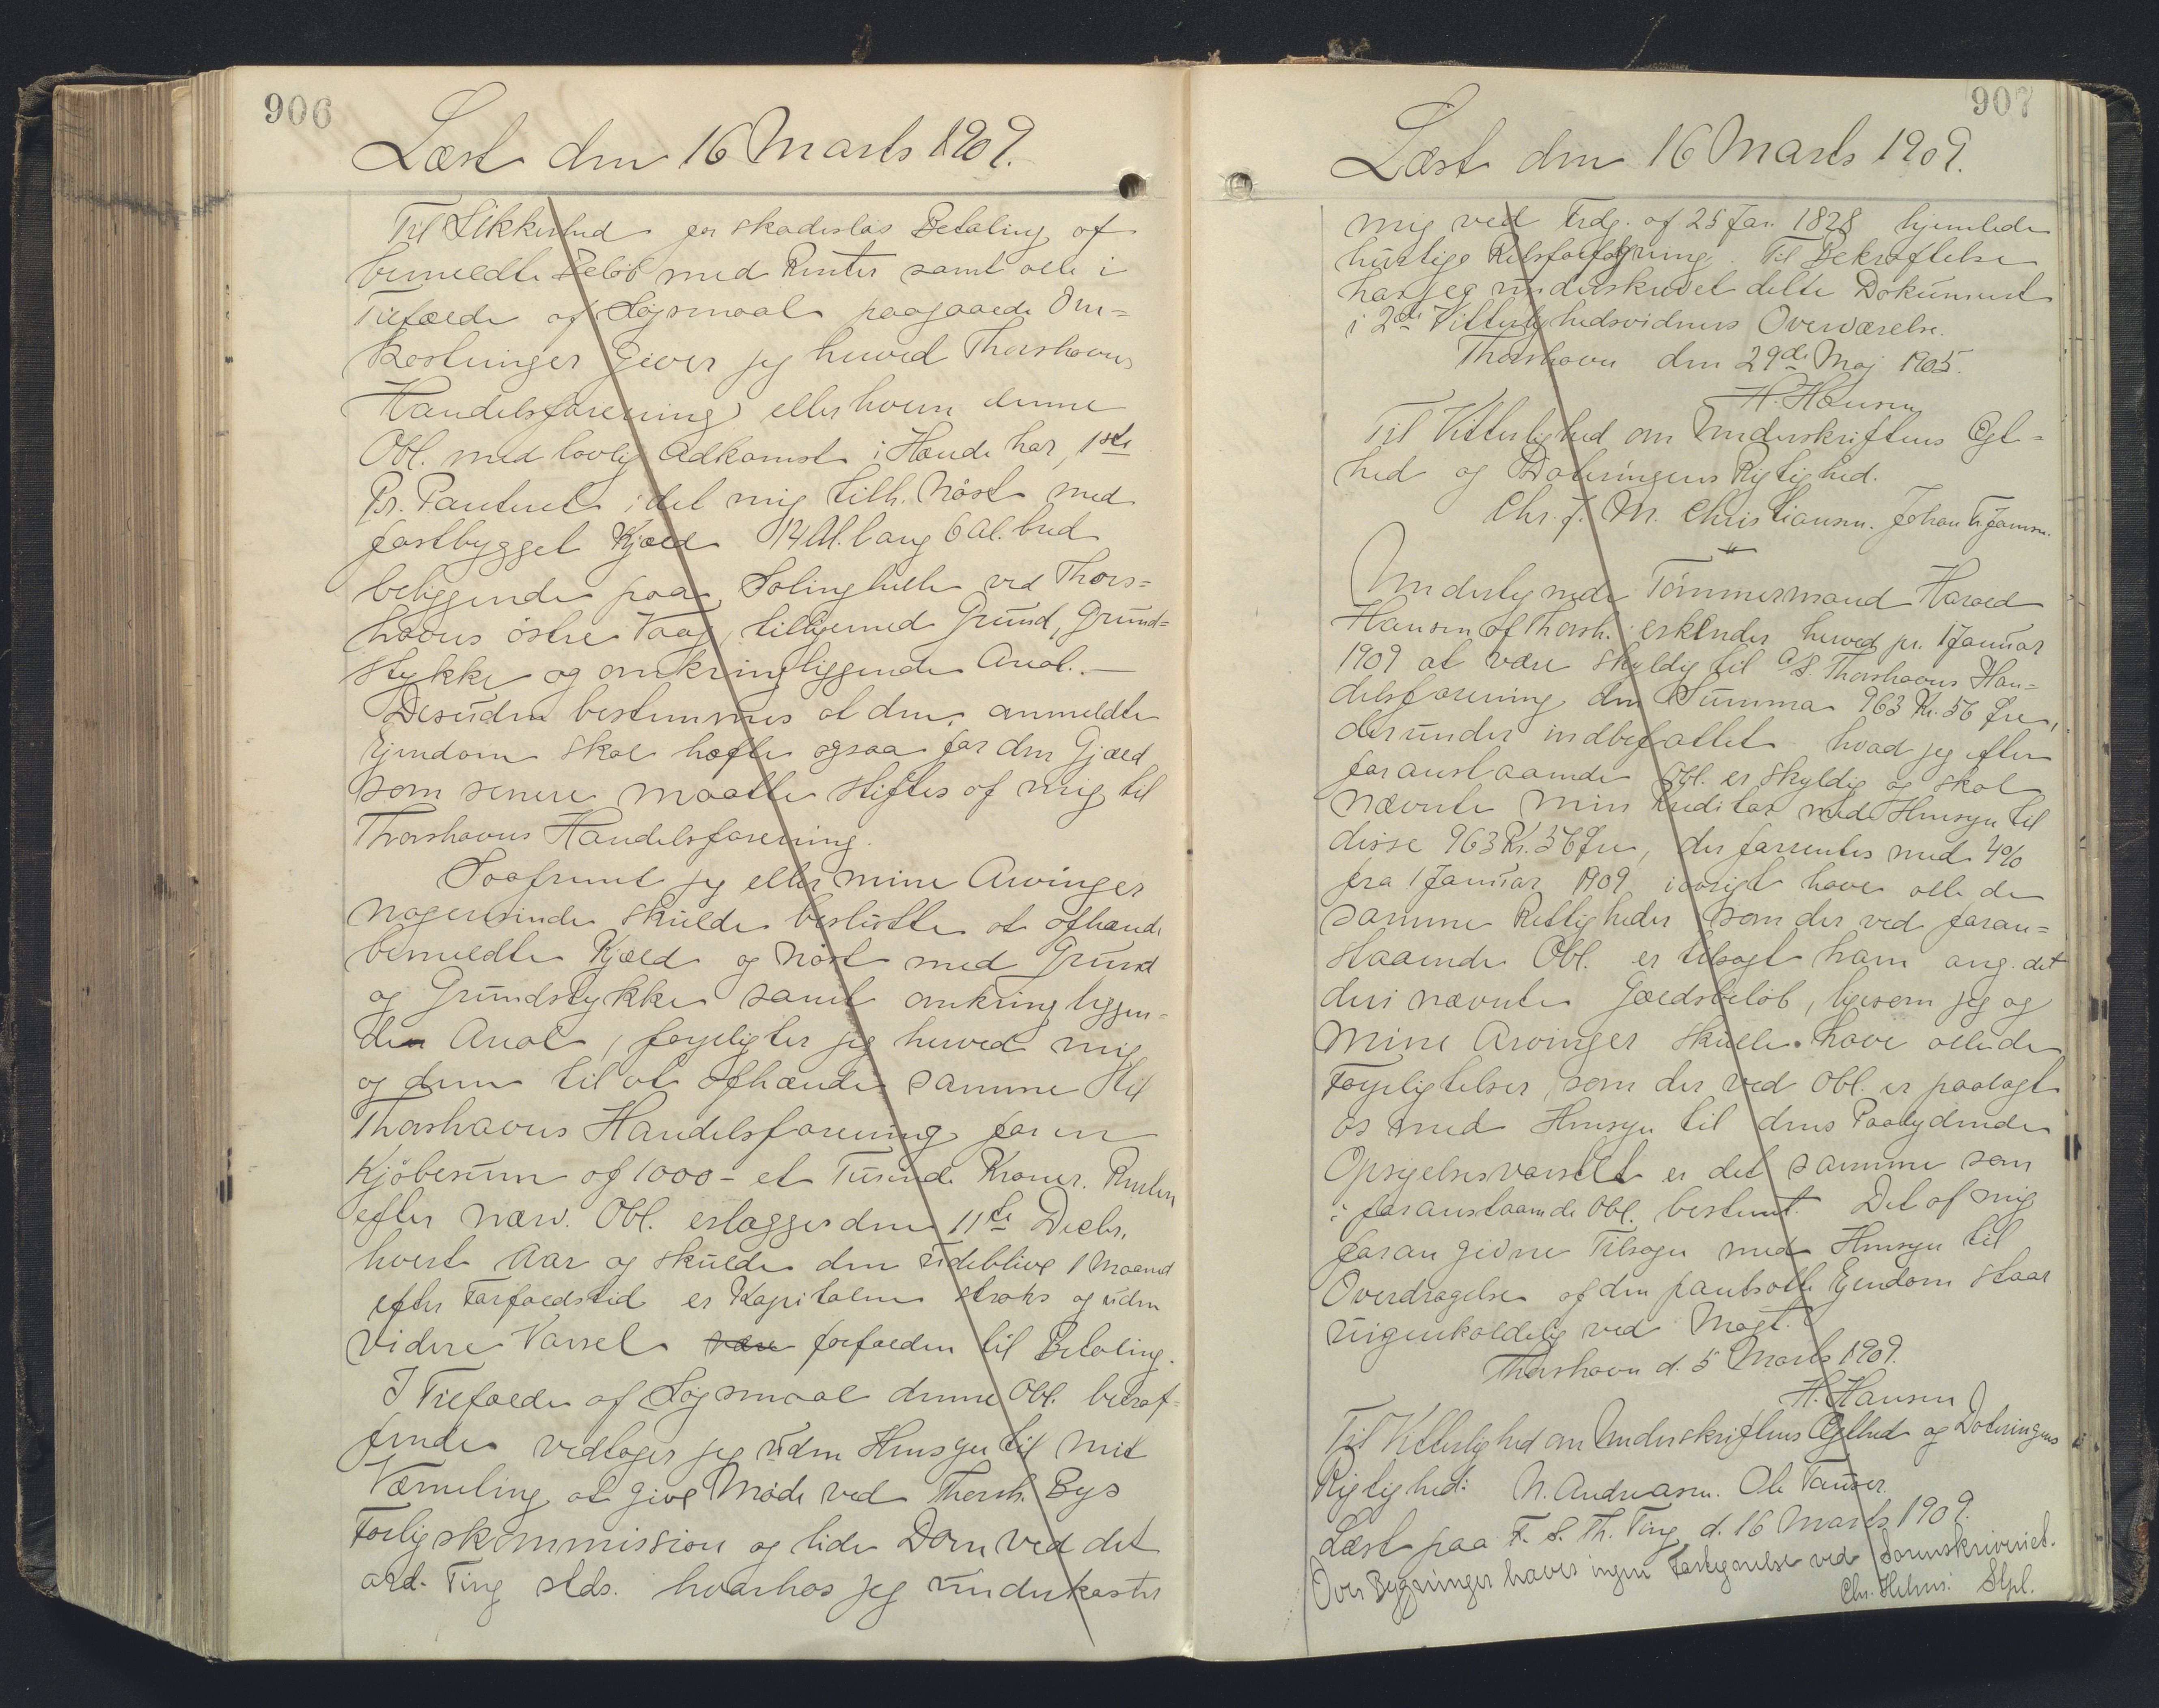 906
Læst den 16 Marts 1909.
Til Sikkerhed for skadeslös Betaling af
bemeldte Belöb med Renter samt alle i
Tilfælde af Sögsmaal paagaaede Om=
kostninger giver jeg herved Thorshavns
Handelsforening eller hvem denne
Obl. med lovlig Adkomst i Hænde har, 1ste
Pr. Panteret i det mig tilh. Nöst med
fastbygget Kjæld 14 Al. lang 6 Al. bred
beliggende paa ved Thors=
havns östre Vaag, tilligemed Grund, Grund=
stykke og omkringliggende Areal. —
Desuden bestemmes at den anmeldte
Ejendom skal hæfte ogsaa for den Gjæld
som senere maatte stiftes af mig til
Thorshavns Handelsforening.
Saafremt jeg eller mine Arvinger
nogensinde skulde beslutte at afhænde
bemeldte Kjæld og Nöst med Grund
og Grundstykke samt omkringliggen=
den Areal, forpligter jeg herved mig
og dem til at afhænde samme til
Thorshavns Handelsforening for en
Kjöbesum af 1000 - et Tusinde Kroner. Renten
efter nærv. Obl. erlægges den 11te Decbr.
hvert Aar og skulde den udeblive 1 Maaned
efter Forfaldstid er Kapitalen straks og uden
videre Varsel være forfalden til Betaling.
I Tilfælde af Sögsmaal denne Obl. betræf=
fende vedtager jeg uden Hensyn til mit
Værneting at give Möde ved Thorsh. Bys
Forligskommission og lide Dom ved det
ord. Ting slds. hvorhos jeg underkaster
907
Læst den 16 Marts 1909.
mig ved Frdg. af 25 Jan. 1828 hjemlede
hurtige Retsforfölgning. Til Bekræftelse
har jeg underskrevet dette Dokument
i 2de Vitterlighedsvidners Overværelse.
Thorshavn den 29de Maj 1905.
H. Hansen
Til Vitterlighed om Underskriftens Ægt=
hed og Dateringens Rigtighed.
Chr. J. M. Christiansen. Johan Fr. Jensen.
Undertegnede Tömmermand Harald
Hansen af Thorsh. erkender herved pr. 1 Januar
1909 at være skyldig til A/S. Thorshavns Han=
delsforening den Summa 963 Kr. 56 Öre,
derunder indbefattet hvad jeg efter
foranstaaende Obl. er skyldig og skal
nævnte min Kreditor med Hensyn til
disse 963 Kr. 56 Öre, der forrentes med 4%
fra 1 Januar 1909 iövrigt have alle de
samme Rettigheder som der ved foran=
staaende Obl. er tilsagt ham ang. det
deri nævnte Gældsbelöb, ligesom jeg og
mine Arvinger skulle have alle de
Forpligtelser, som der ved Obl. er paalagt
os med Hensyn til dens Paalydende
Opsigelsesvarslet er det samme som
i foranstaaende Obl. bestemt. Det af mig
foran givne Tilsagn med Hensyn til
Overdragelse af den pantsatte Ejendom staar
uigenkaldelig ved Magt.
Thorshavn d. 5 Marts 1909.
H. Hansen
Til Vitterlighed om Underskriftens Ægthed og Dateringens
Rigtighed: N. Andreasen. Ole Tausen.
Læst paa F. S. Th. Ting d. 16 Marts 1909.
Over Bygninger haves ingen Fortegnelse ved Sorenskriveriet.
Chr. Stpl.